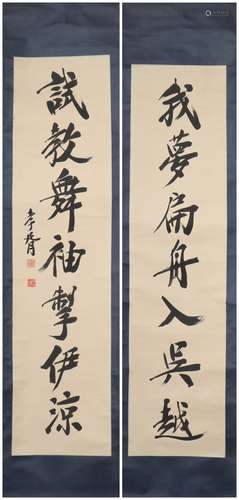 我夢扁舟入吳越
試教舞袖掣伊涼
孝胥